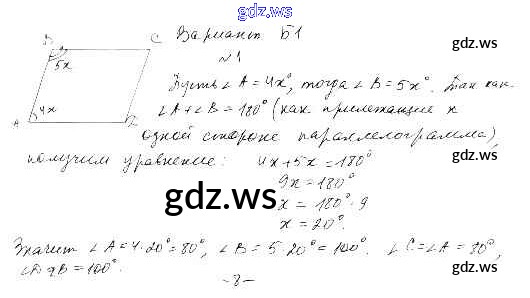 gdz.ws
Вариант Б1
№1
B
C
5x
4x
A
D
Пусть ∠A = 4x°, тогда ∠B = 5x°. Так как
∠A + ∠B = 180° (как прилежащие к
одной стороне параллелограмма),
получим уравнение: 4x + 5x = 180°
9x = 180°
x = 180° : 9
x = 20°.
Значит ∠A = 4 · 20° = 80°, ∠B = 5 · 20° = 100°. ∠C = ∠A = 80°,
∠B = 100°.
-3-
gdz.ws
gdz.ws
gdz.ws
gdz.ws